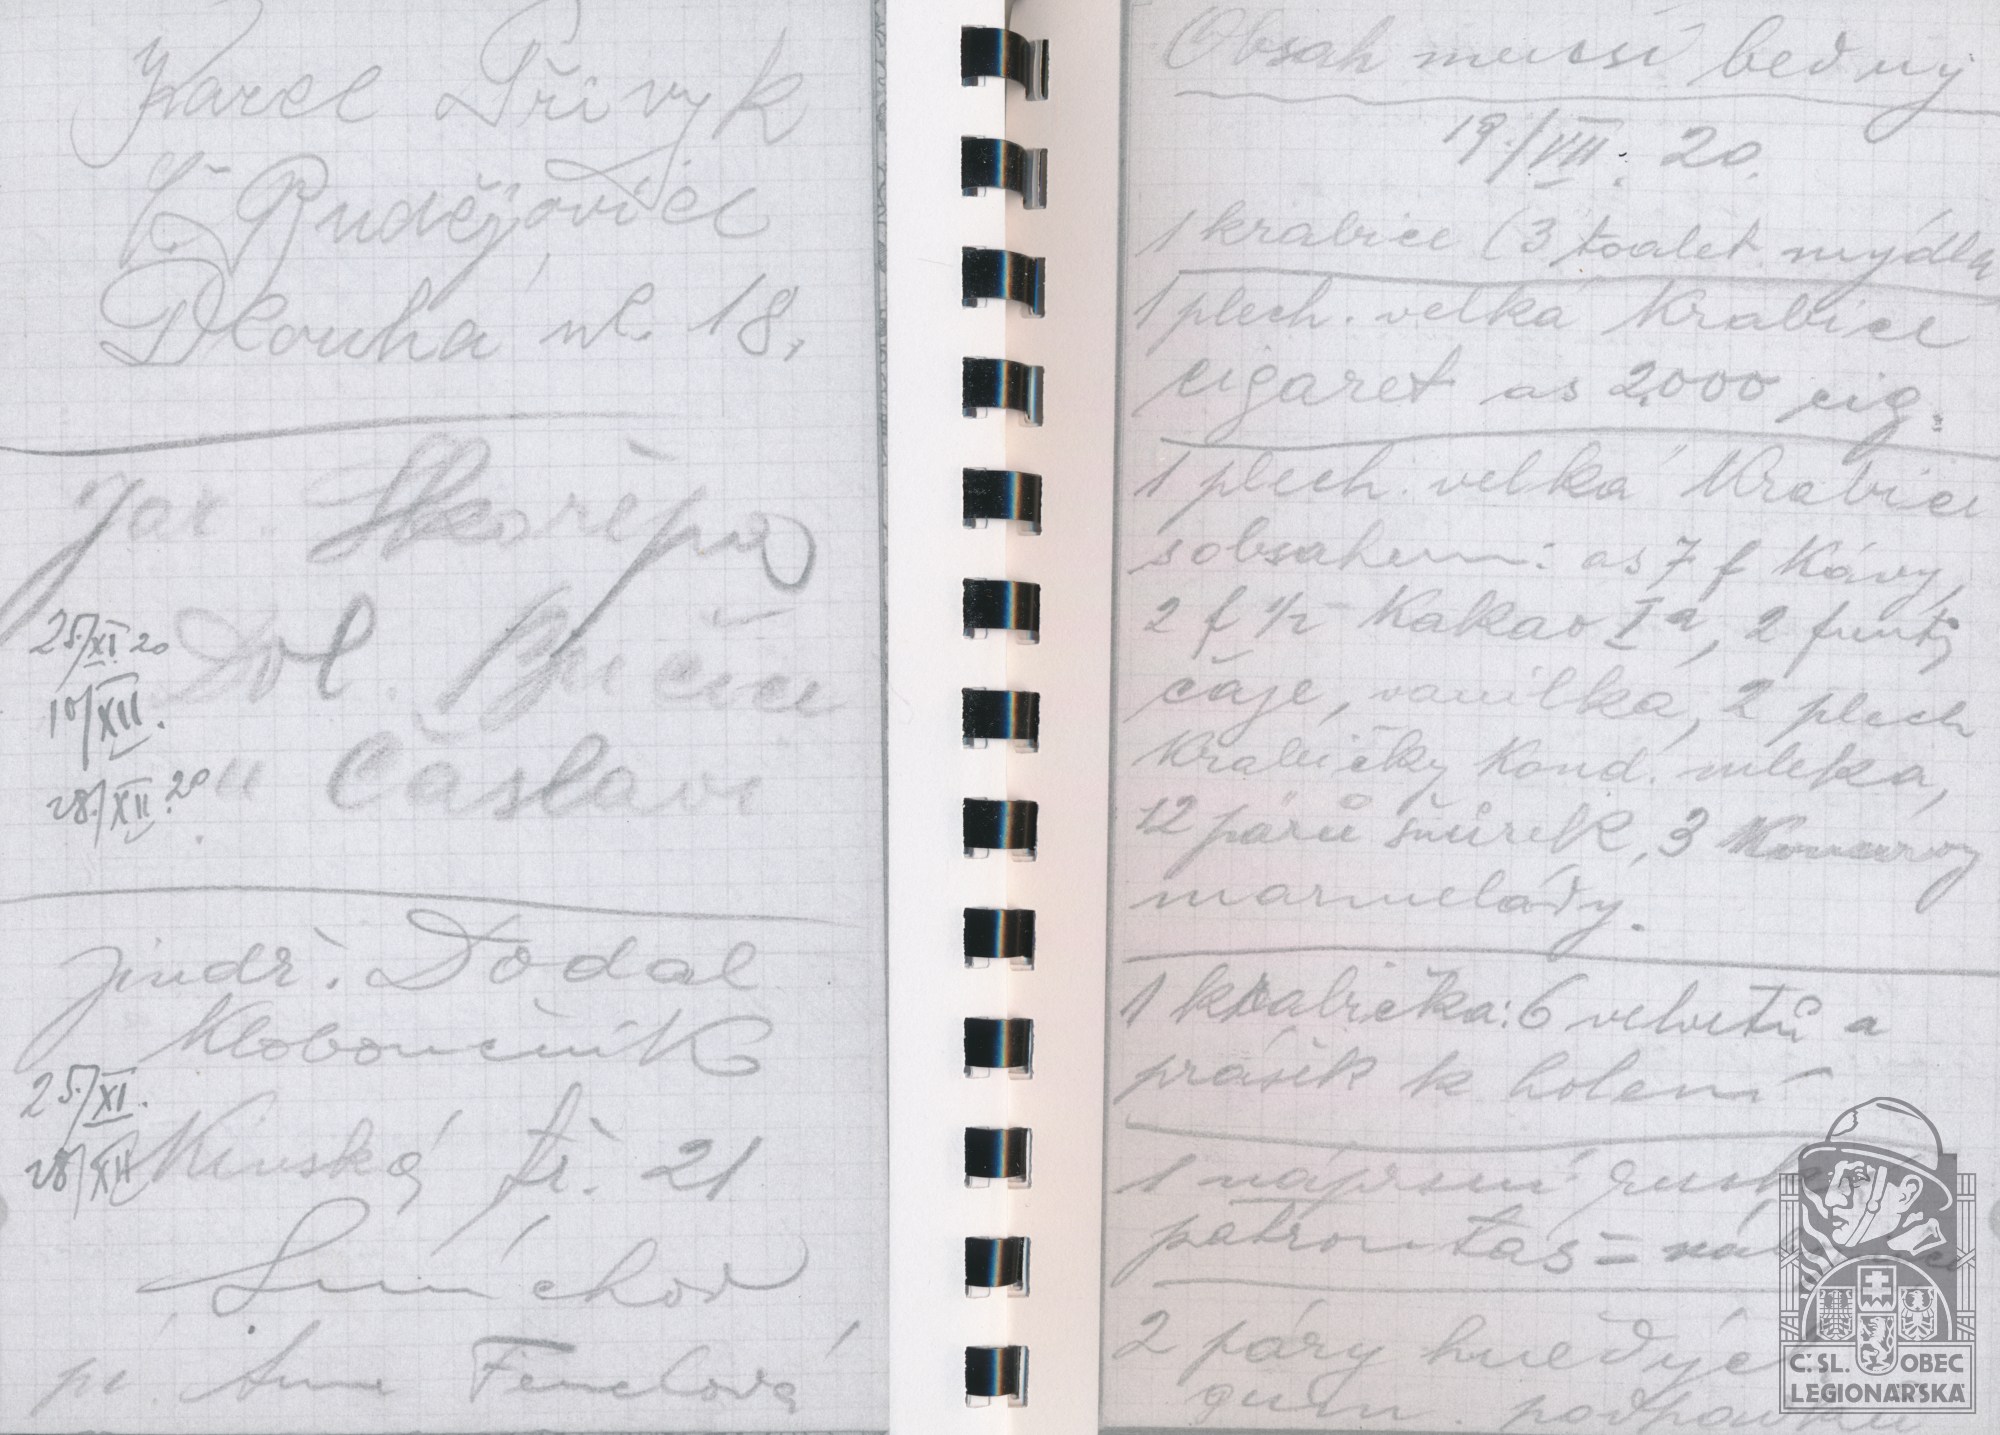 Karel Přivyk
Č. Budějovice
Dlouhá ul. 18.
Jar. Skořepa
25./XI. 20
Dol. Bučice
10/XII.
u Čáslavi
28./XII. 20
Jindř. Dodal
Kloboučník
25./XI.
Kinská tř. 21
28/XII
Smíchov
pí. Anna Fenclová
Obsah mensí bedny
19./VIII. 20.
1 krabice (3 toalet. mýdla
1 plech. velká krabice
cigaret as 2000 cig.
1 plech. velká krabice
s obsahem: as 7 f kávy,
2 f 1/2 kakao Ia, 2 funty
čaje, vanilka, 2 plech
krabičky kond. mleka,
12 párů šňůrek, 3 konservy
marmelády.
1 krabička: 6 velvetů a
prášek k holení
1 náprsní
patrontaš =
2 páry hnědých
gum. podpadků
C.SL. OBEC
LEGIONÁŘSKÁ